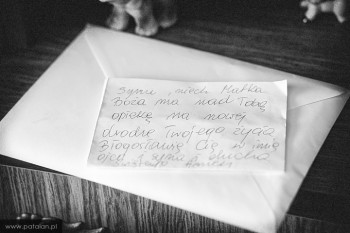 Synu, niech Matka
Boża ma nad Tobą
opiekę na nowej
drodze Twojego życia
Błogosławię Cię w imię
ojca i syna i ducha
świętego Amen
www.patalan.pl